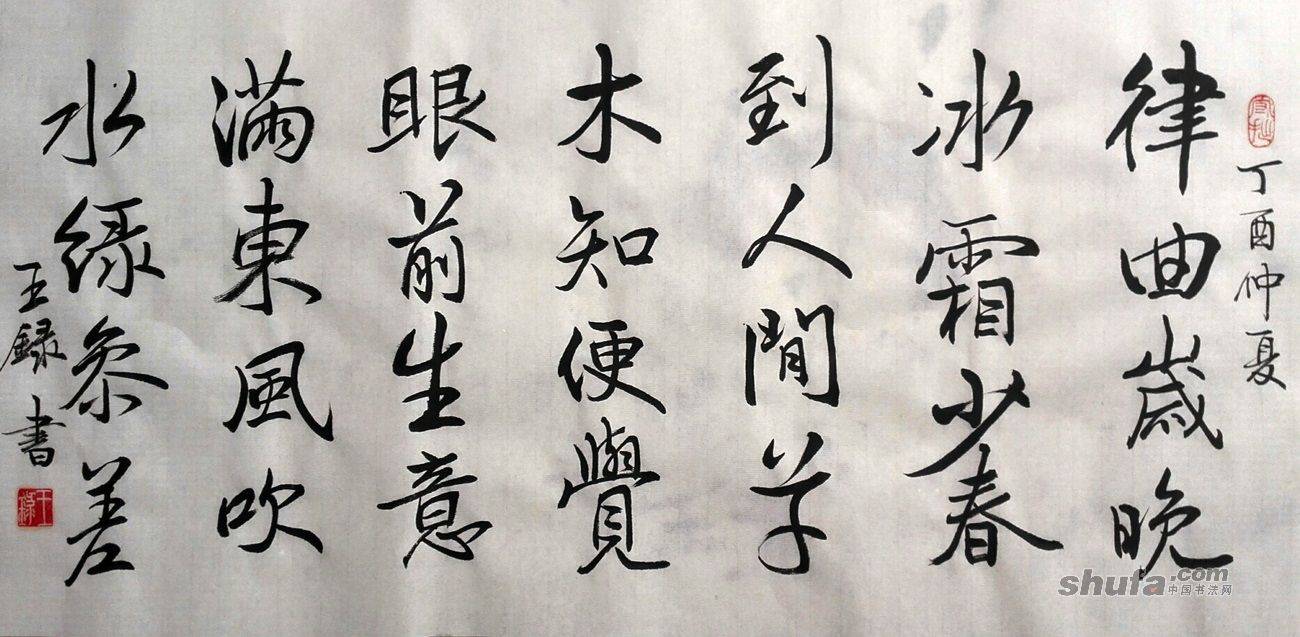 丁酉仲夏
律曲歲晚
冰霜少春
到人間草
木知便覺
眼前生意
滿東風吹
水緑參差
王録書
shufa.com
中国书法网